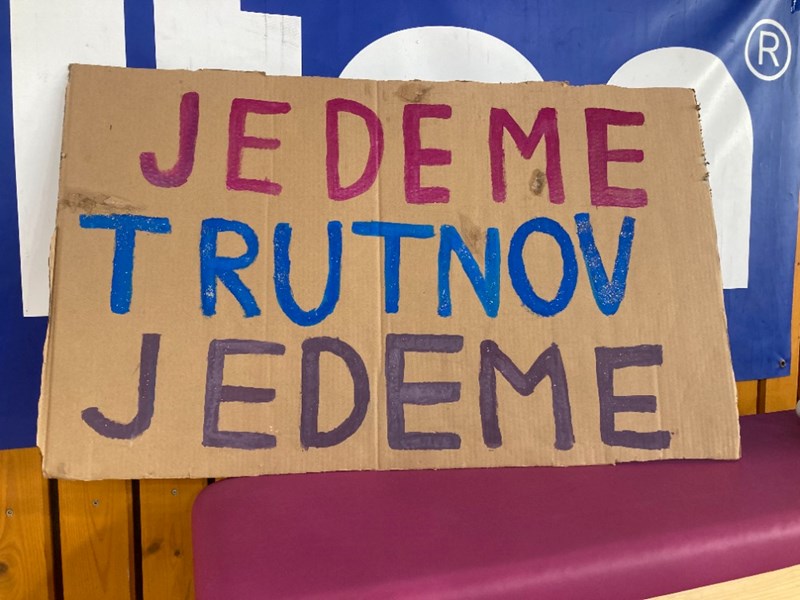 JEDEME
TRUTNOV
JEDEME
®